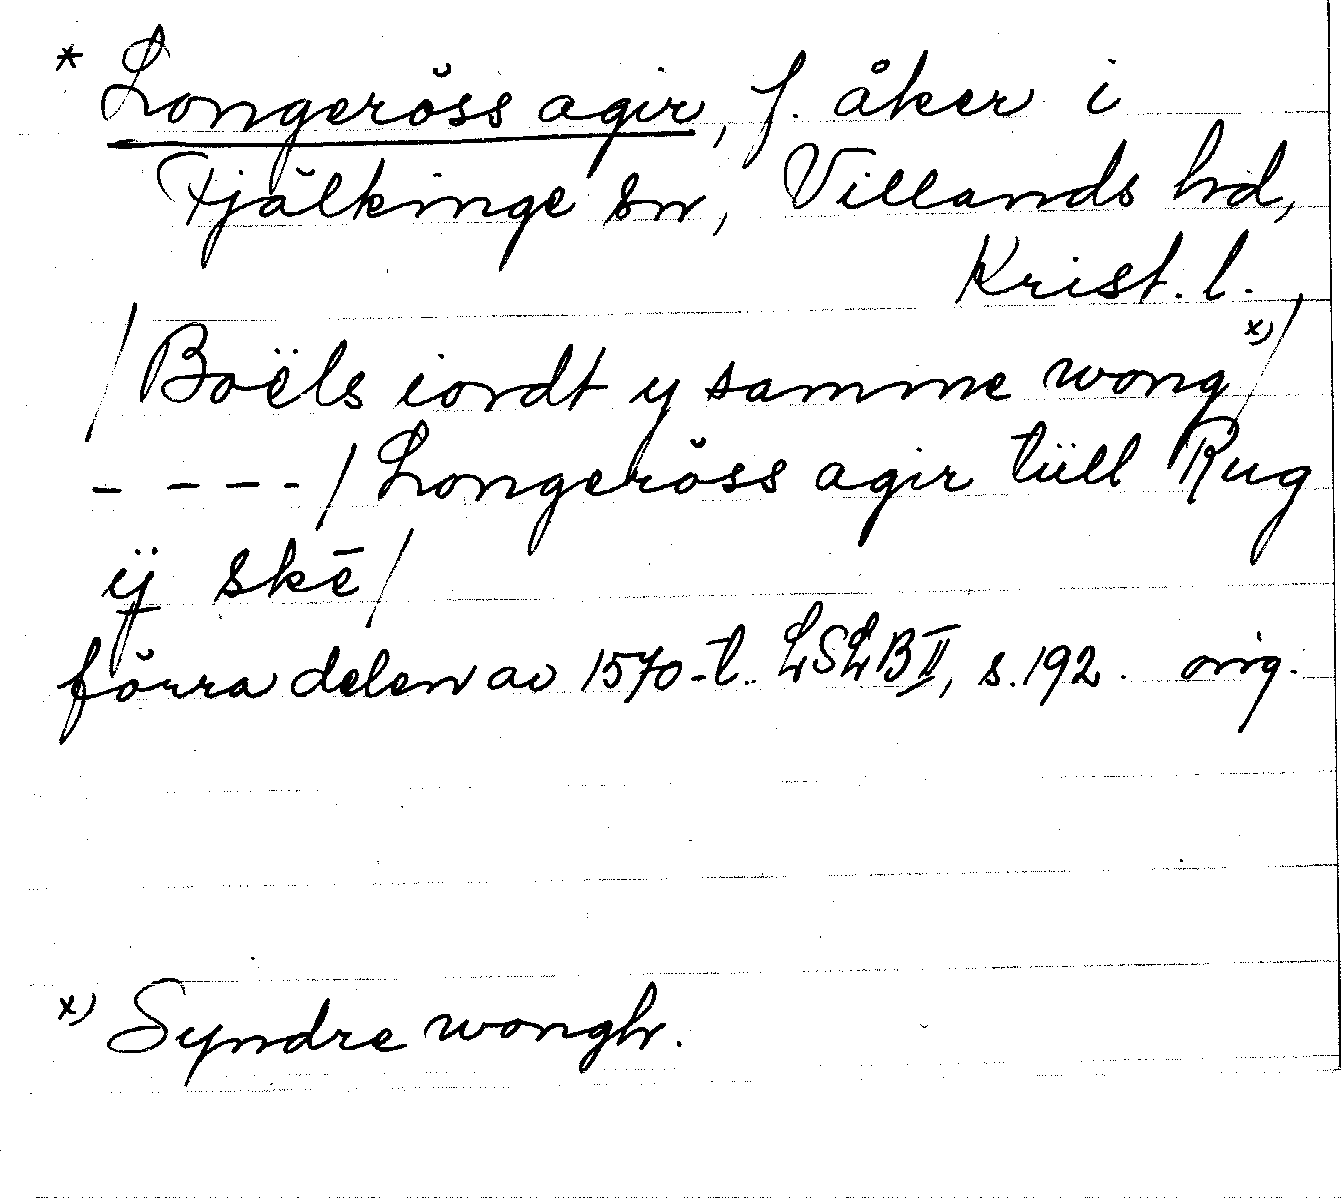 * Longerŏss agir, f. åker i
Fjälkinge sn, Villands hd,
Krist. l.
/ Boëls iordt y samme wong x) /
- - - - / Longerŏss agir tüll Rug
ÿ skē /
förra delen av 1570-t. LSLB II, s. 192. orig.
x) Syndre wongh.